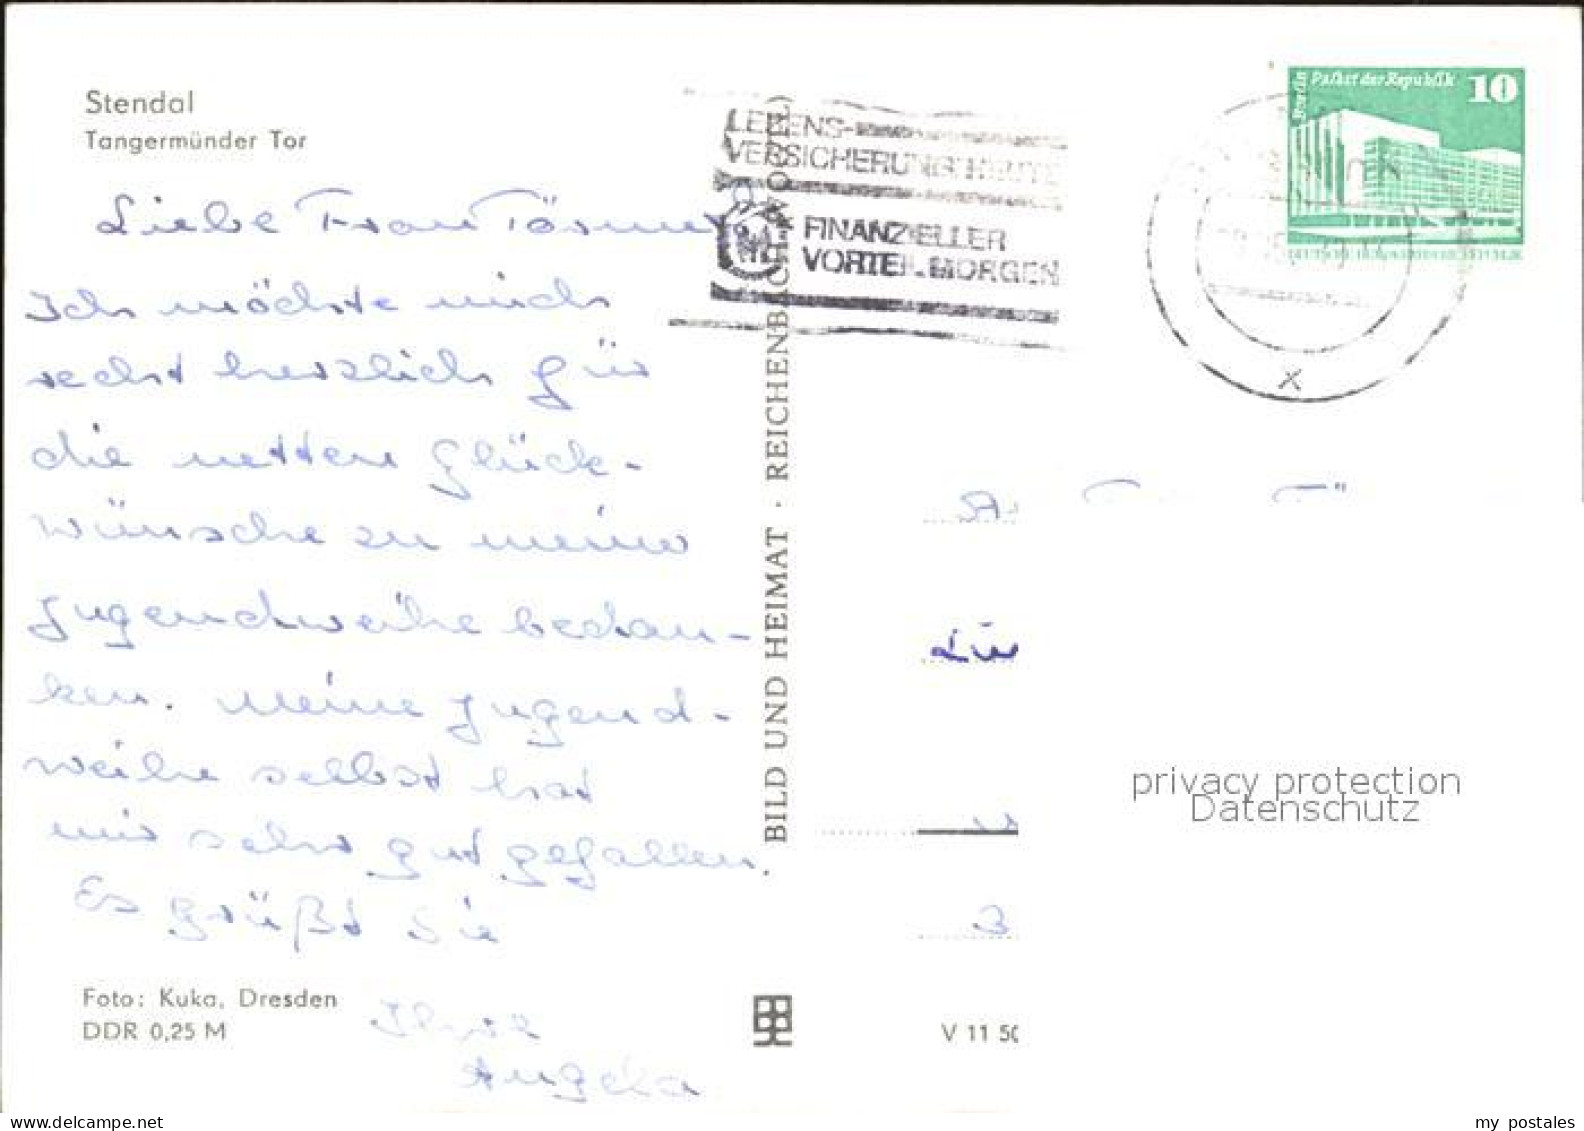 Stendal
Tangermünder Tor
Liebe Frau
Ich möchte mich
recht herzlich für
die netten Glück-
wünsche zu meiner
Jugendweihe bedan-
ken. Meine Jugend-
weihe selbst hat
mir sehr gut gefallen.
Es grüßt Sie
Ihre
Angela
Foto: Kuka, Dresden
DDR 0,25 M
BILD UND HEIMAT · REICHENBACH (VOGTL)
LEBENS-
VERSICHERUNG HEUTE
FINANZIELLER
VORTEIL MORGEN
Berlin Palast der Republik 10
x
V 11 50
privacy protection
Datenschutz
my postales